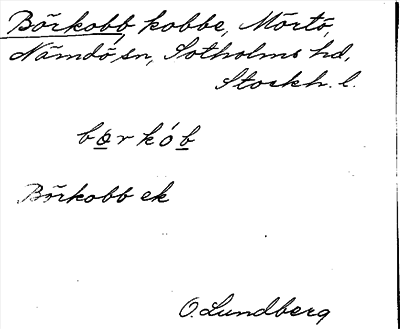 Börkobb, kobbe, Mörtö,
Nämdö sn, Sotholms hd,
Stockh. l.
bo̲rkób̲
Börkobb ek
O. Lundberg